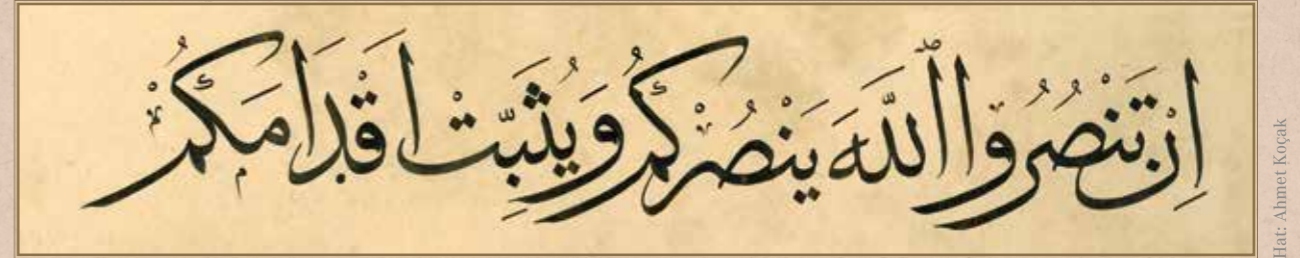 اِنْ تَنْصُرُوا اللّٰهَ يَنْصُرْكُمْ وَيُثَبِّتْ اَقْدَامَكُمْ
Hat: Ahmet Koçak